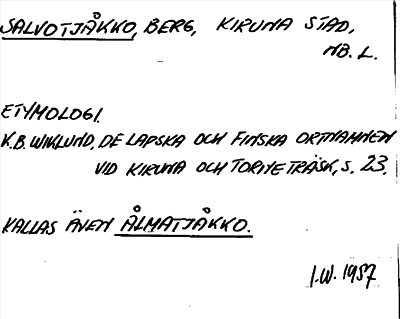 SALVOTJÅKKO, BERG, KIRUNA STAD,
NB. L.
ETYMOLOGI.
K.B. WIKLUND, DE LAPSKA OCH FINSKA ORTNAMNEN
VID KIRUNA OCH TORNETRÄSK, S. 23.
KALLAS ÄVEN ÅLMATJÅKKO.
I.W. 1957